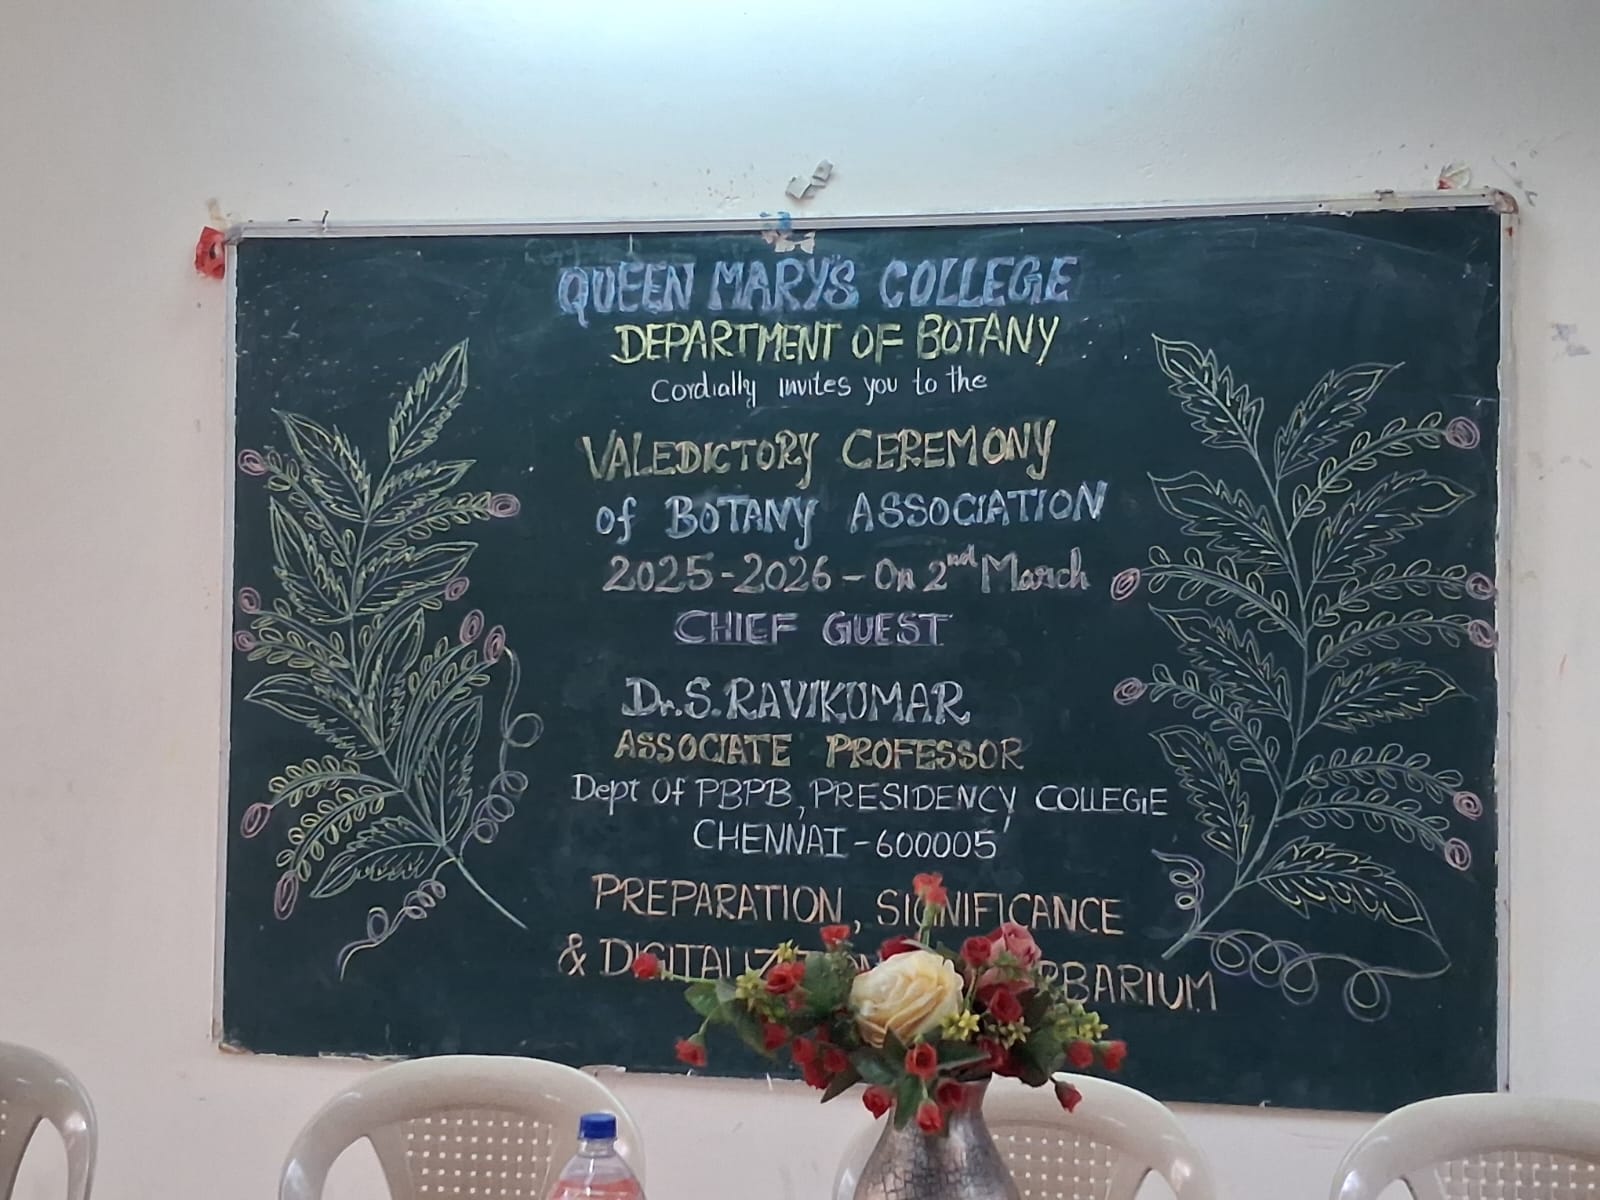 QUEEN MARY'S COLLEGE
DEPARTMENT OF BOTANY
Cordially invites you to the
VALEDICTORY CEREMONY
of BOTANY ASSOCIATION
2025-2026 - On 2nd March
CHIEF GUEST
Dr. S. RAVIKUMAR
ASSOCIATE PROFESSOR
Dept Of PBPB, PRESIDENCY COLLEGE
CHENNAI - 600005
PREPARATION, SIGNIFICANCE
&